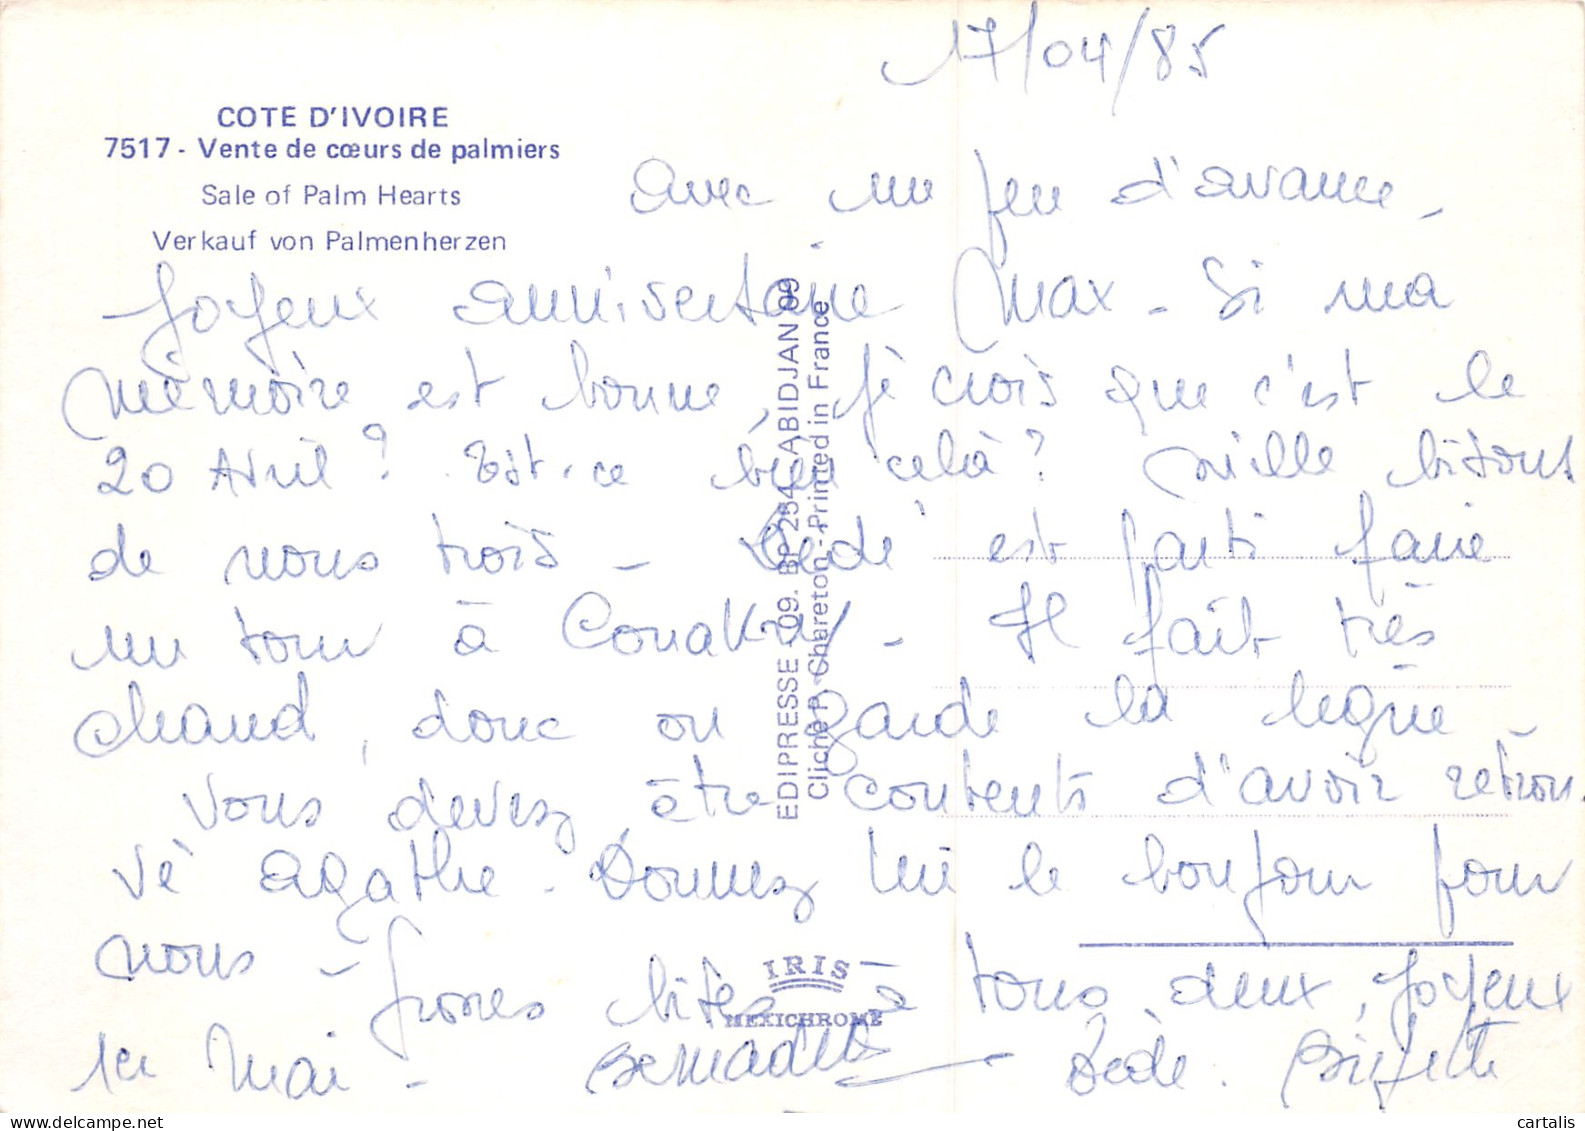 17/04/85
COTE D'IVOIRE
7517 - Vente de cœurs de palmiers
Sale of Palm Hearts
Verkauf von Palmenherzen
avec un peu d'avance,
Joyeux anniversaire Max - Si ma
mémoire est bonne, je crois que c'est le
20 Avril ? Est-ce bien celà ? Mille bisous
de nous trois - Dédé est parti faire
un tour à Conakry - Il fait très
chaud, donc on garde la ligne -
Vous devez être contents d'avoir retrou-
vé Agathe - Donnez lui le bonjour pour
nous - Grosses bises à tous deux, Joyeux
1er Mai - Bernadette Dédé. Brigitte
EDIPRESSE - 09. BP 254 - ABIDJAN 09
Cliché P. Chareton - Printed in France
IRIS
MEXICHROME
cartalis